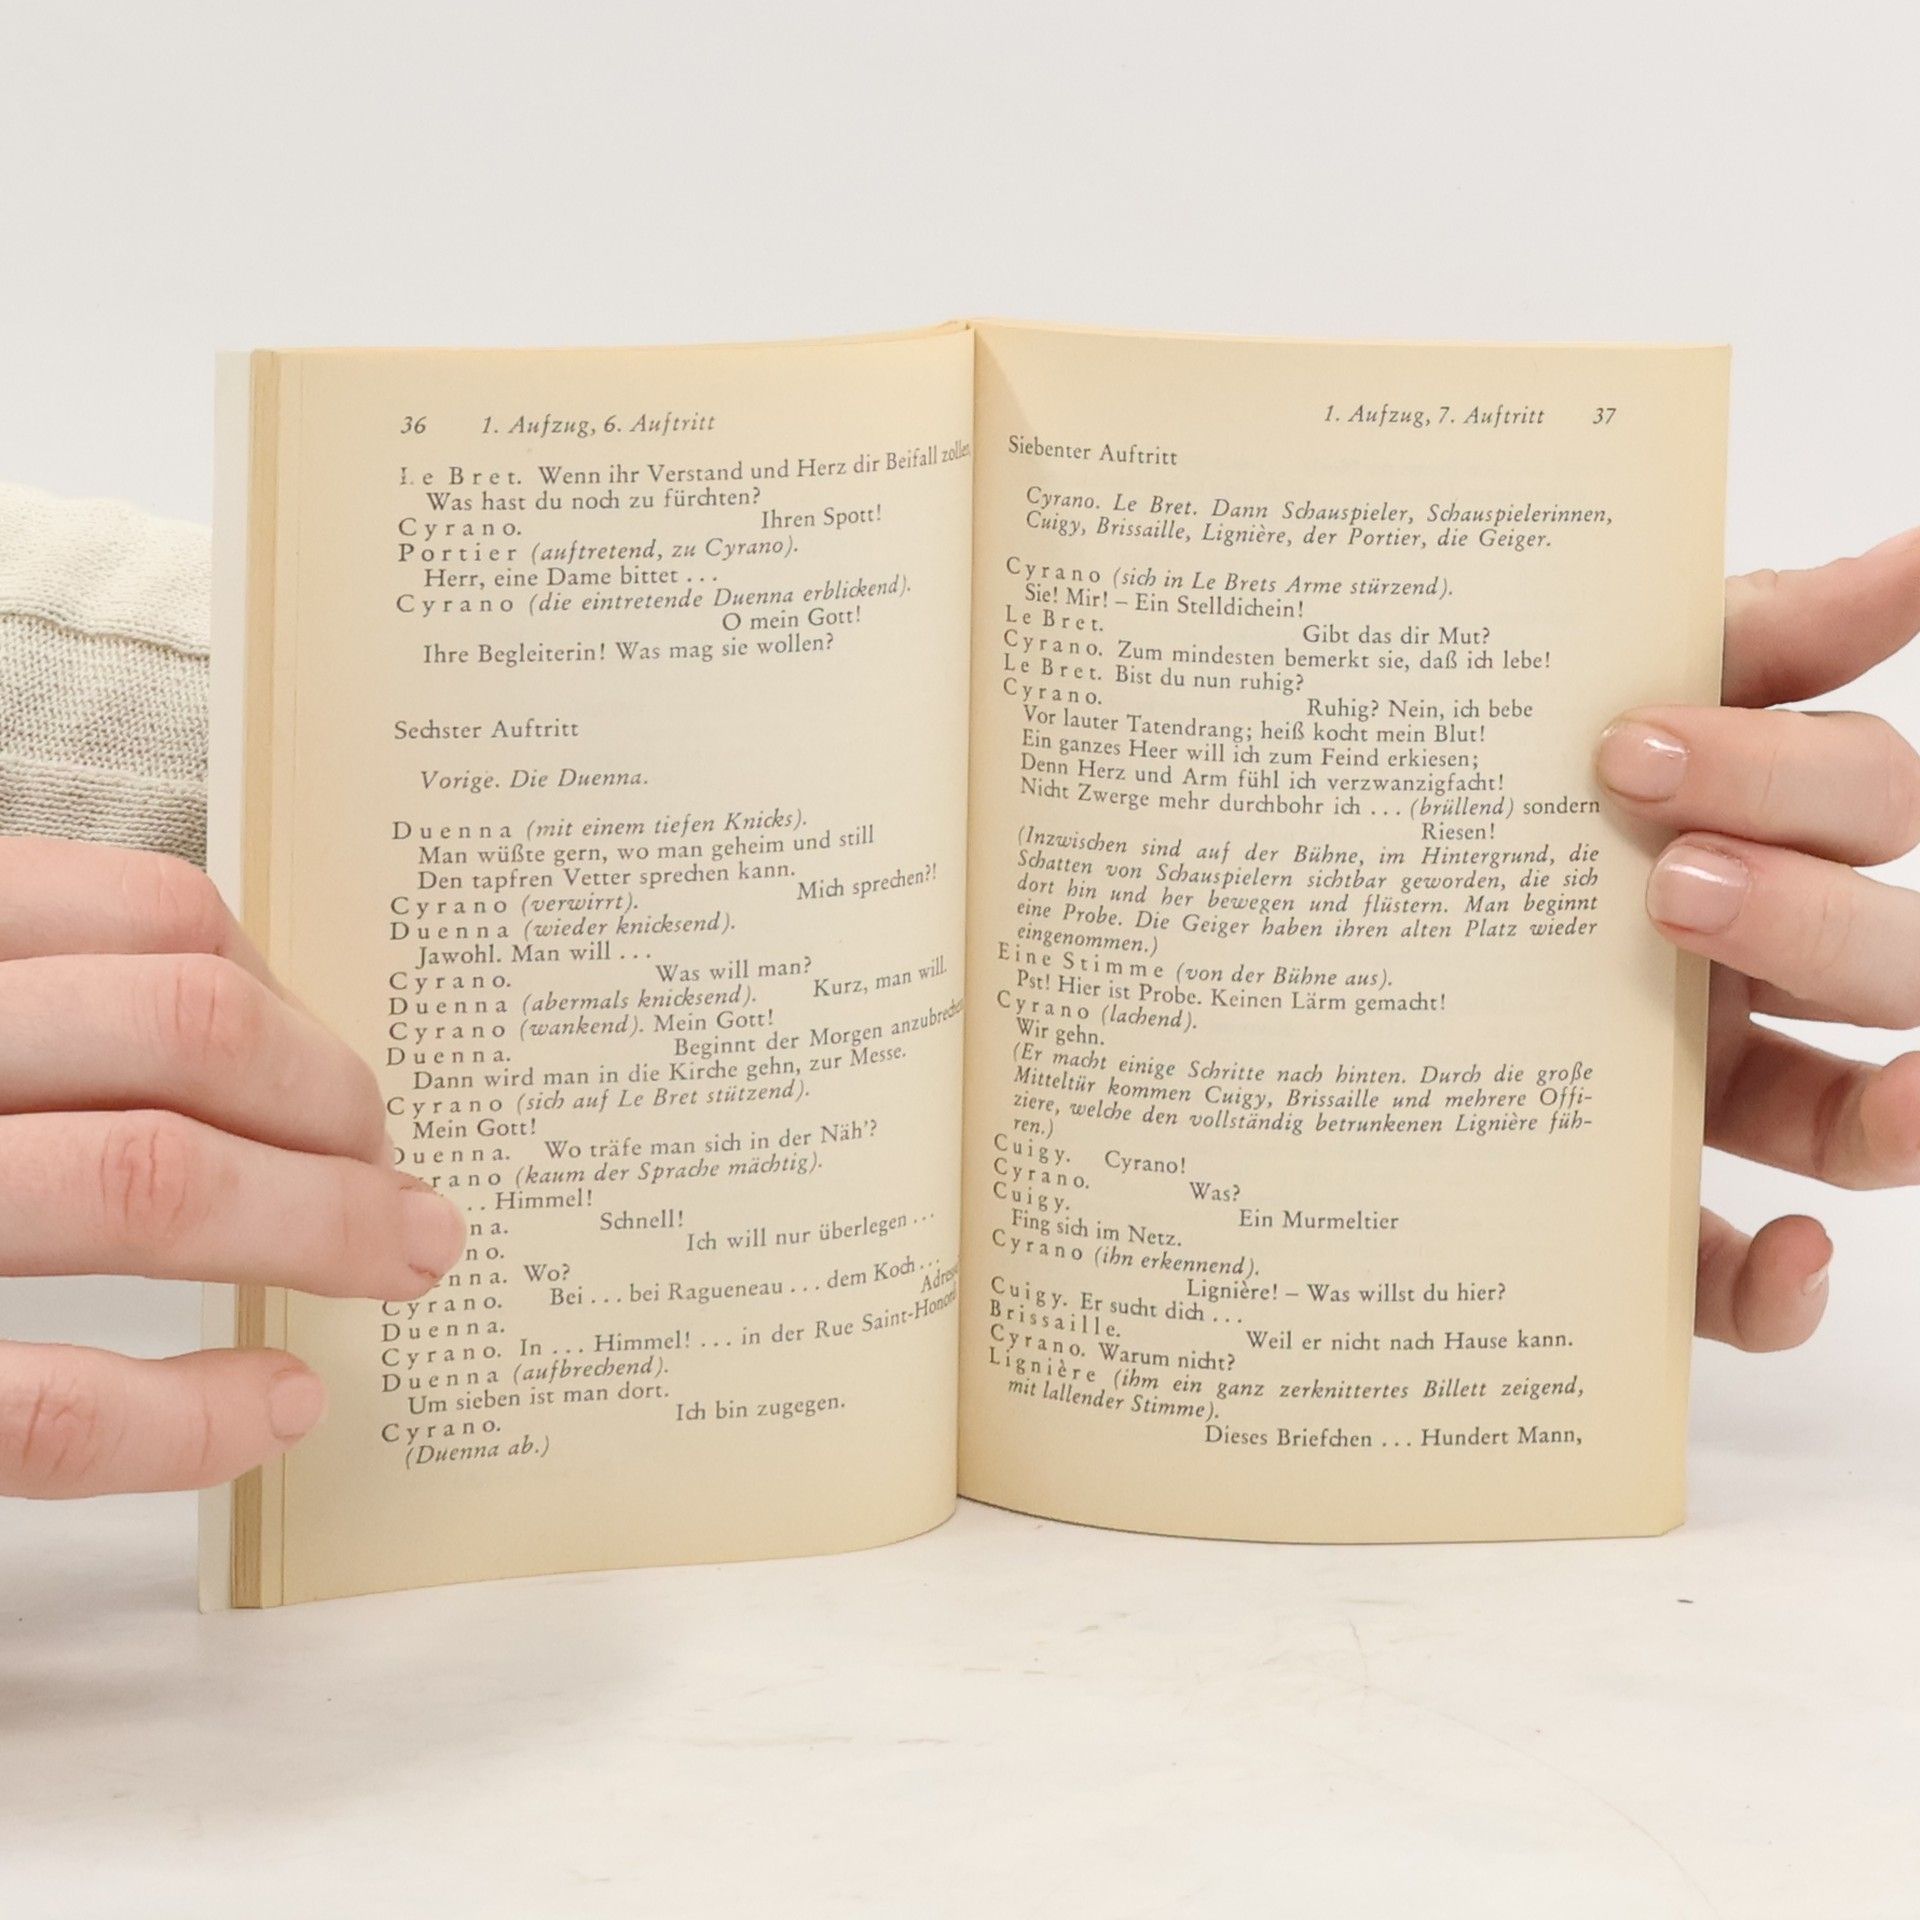 36 1. Aufzug, 6. Auftritt
Le Bret. Wenn ihr Verstand und Herz dir Beifall zollen,
Was hast du noch zu fürchten?
Cyrano. Ihren Spott!
Portier (auftretend, zu Cyrano).
Herr, eine Dame bittet ...
Cyrano (die eintretende Duenna erblickend).
O mein Gott!
Ihre Begleiterin! Was mag sie wollen?
Sechster Auftritt
Vorige. Die Duenna.
Duenna (mit einem tiefen Knicks).
Man wüßte gern, wo man geheim und still
Den tapfren Vetter sprechen kann.
Cyrano (verwirrt). Mich sprechen?!
Duenna (wieder knicksend).
Jawohl. Man will ...
Cyrano. Was will man?
Duenna (abermals knicksend). Kurz, man will.
Cyrano (wankend). Mein Gott!
Duenna. Beginnt der Morgen anzubrechen,
Dann wird man in die Kirche gehn, zur Messe.
Cyrano (sich auf Le Bret stützend).
Mein Gott!
Duenna. Wo träfe man sich in der Näh'?
rano (kaum der Sprache mächtig).
.. Himmel!
na. Schnell!
no. Ich will nur überlegen ...
enna. Wo?
Cyrano. Bei ... bei Ragueneau ... dem Koch ...
Duenna. Adresse
Cyrano. In ... Himmel! ... in der Rue Saint-Honoré
Duenna (aufbrechend).
Um sieben ist man dort.
Cyrano. Ich bin zugegen.
(Duenna ab.)
1. Aufzug, 7. Auftritt 37
Siebenter Auftritt
Cyrano. Le Bret. Dann Schauspieler, Schauspielerinnen,
Cuigy, Brissaille, Lignière, der Portier, die Geiger.
Cyrano (sich in Le Brets Arme stürzend).
Sie! Mir! – Ein Stelldichein!
Le Bret. Gibt das dir Mut?
Cyrano. Zum mindesten bemerkt sie, daß ich lebe!
Le Bret. Bist du nun ruhig?
Cyrano. Ruhig? Nein, ich bebe
Vor lauter Tatendrang; heiß kocht mein Blut!
Ein ganzes Heer will ich zum Feind erkiesen;
Denn Herz und Arm fühl ich verzwanzigfacht!
Nicht Zwerge mehr durchbohr ich ... (brüllend) sondern
Riesen!
(Inzwischen sind auf der Bühne, im Hintergrund, die
Schatten von Schauspielern sichtbar geworden, die sich
dort hin und her bewegen und flüstern. Man beginnt
eine Probe. Die Geiger haben ihren alten Platz wieder
eingenommen.)
Eine Stimme (von der Bühne aus).
Pst! Hier ist Probe. Keinen Lärm gemacht!
Cyrano (lachend).
Wir gehn.
(Er macht einige Schritte nach hinten. Durch die große
Mitteltür kommen Cuigy, Brissaille und mehrere Offi-
ziere, welche den vollständig betrunkenen Lignière füh-
ren.)
Cuigy. Cyrano!
Cyrano. Was?
Cuigy. Ein Murmeltier
Fing sich im Netz.
Cyrano (ihn erkennend).
Lignière! – Was willst du hier?
Cuigy. Er sucht dich ...
Brissaille. Weil er nicht nach Hause kann.
Cyrano. Warum nicht?
Lignière (ihm ein ganz zerknittertes Billett zeigend,
mit lallender Stimme).
Dieses Briefchen ... Hundert Mann,